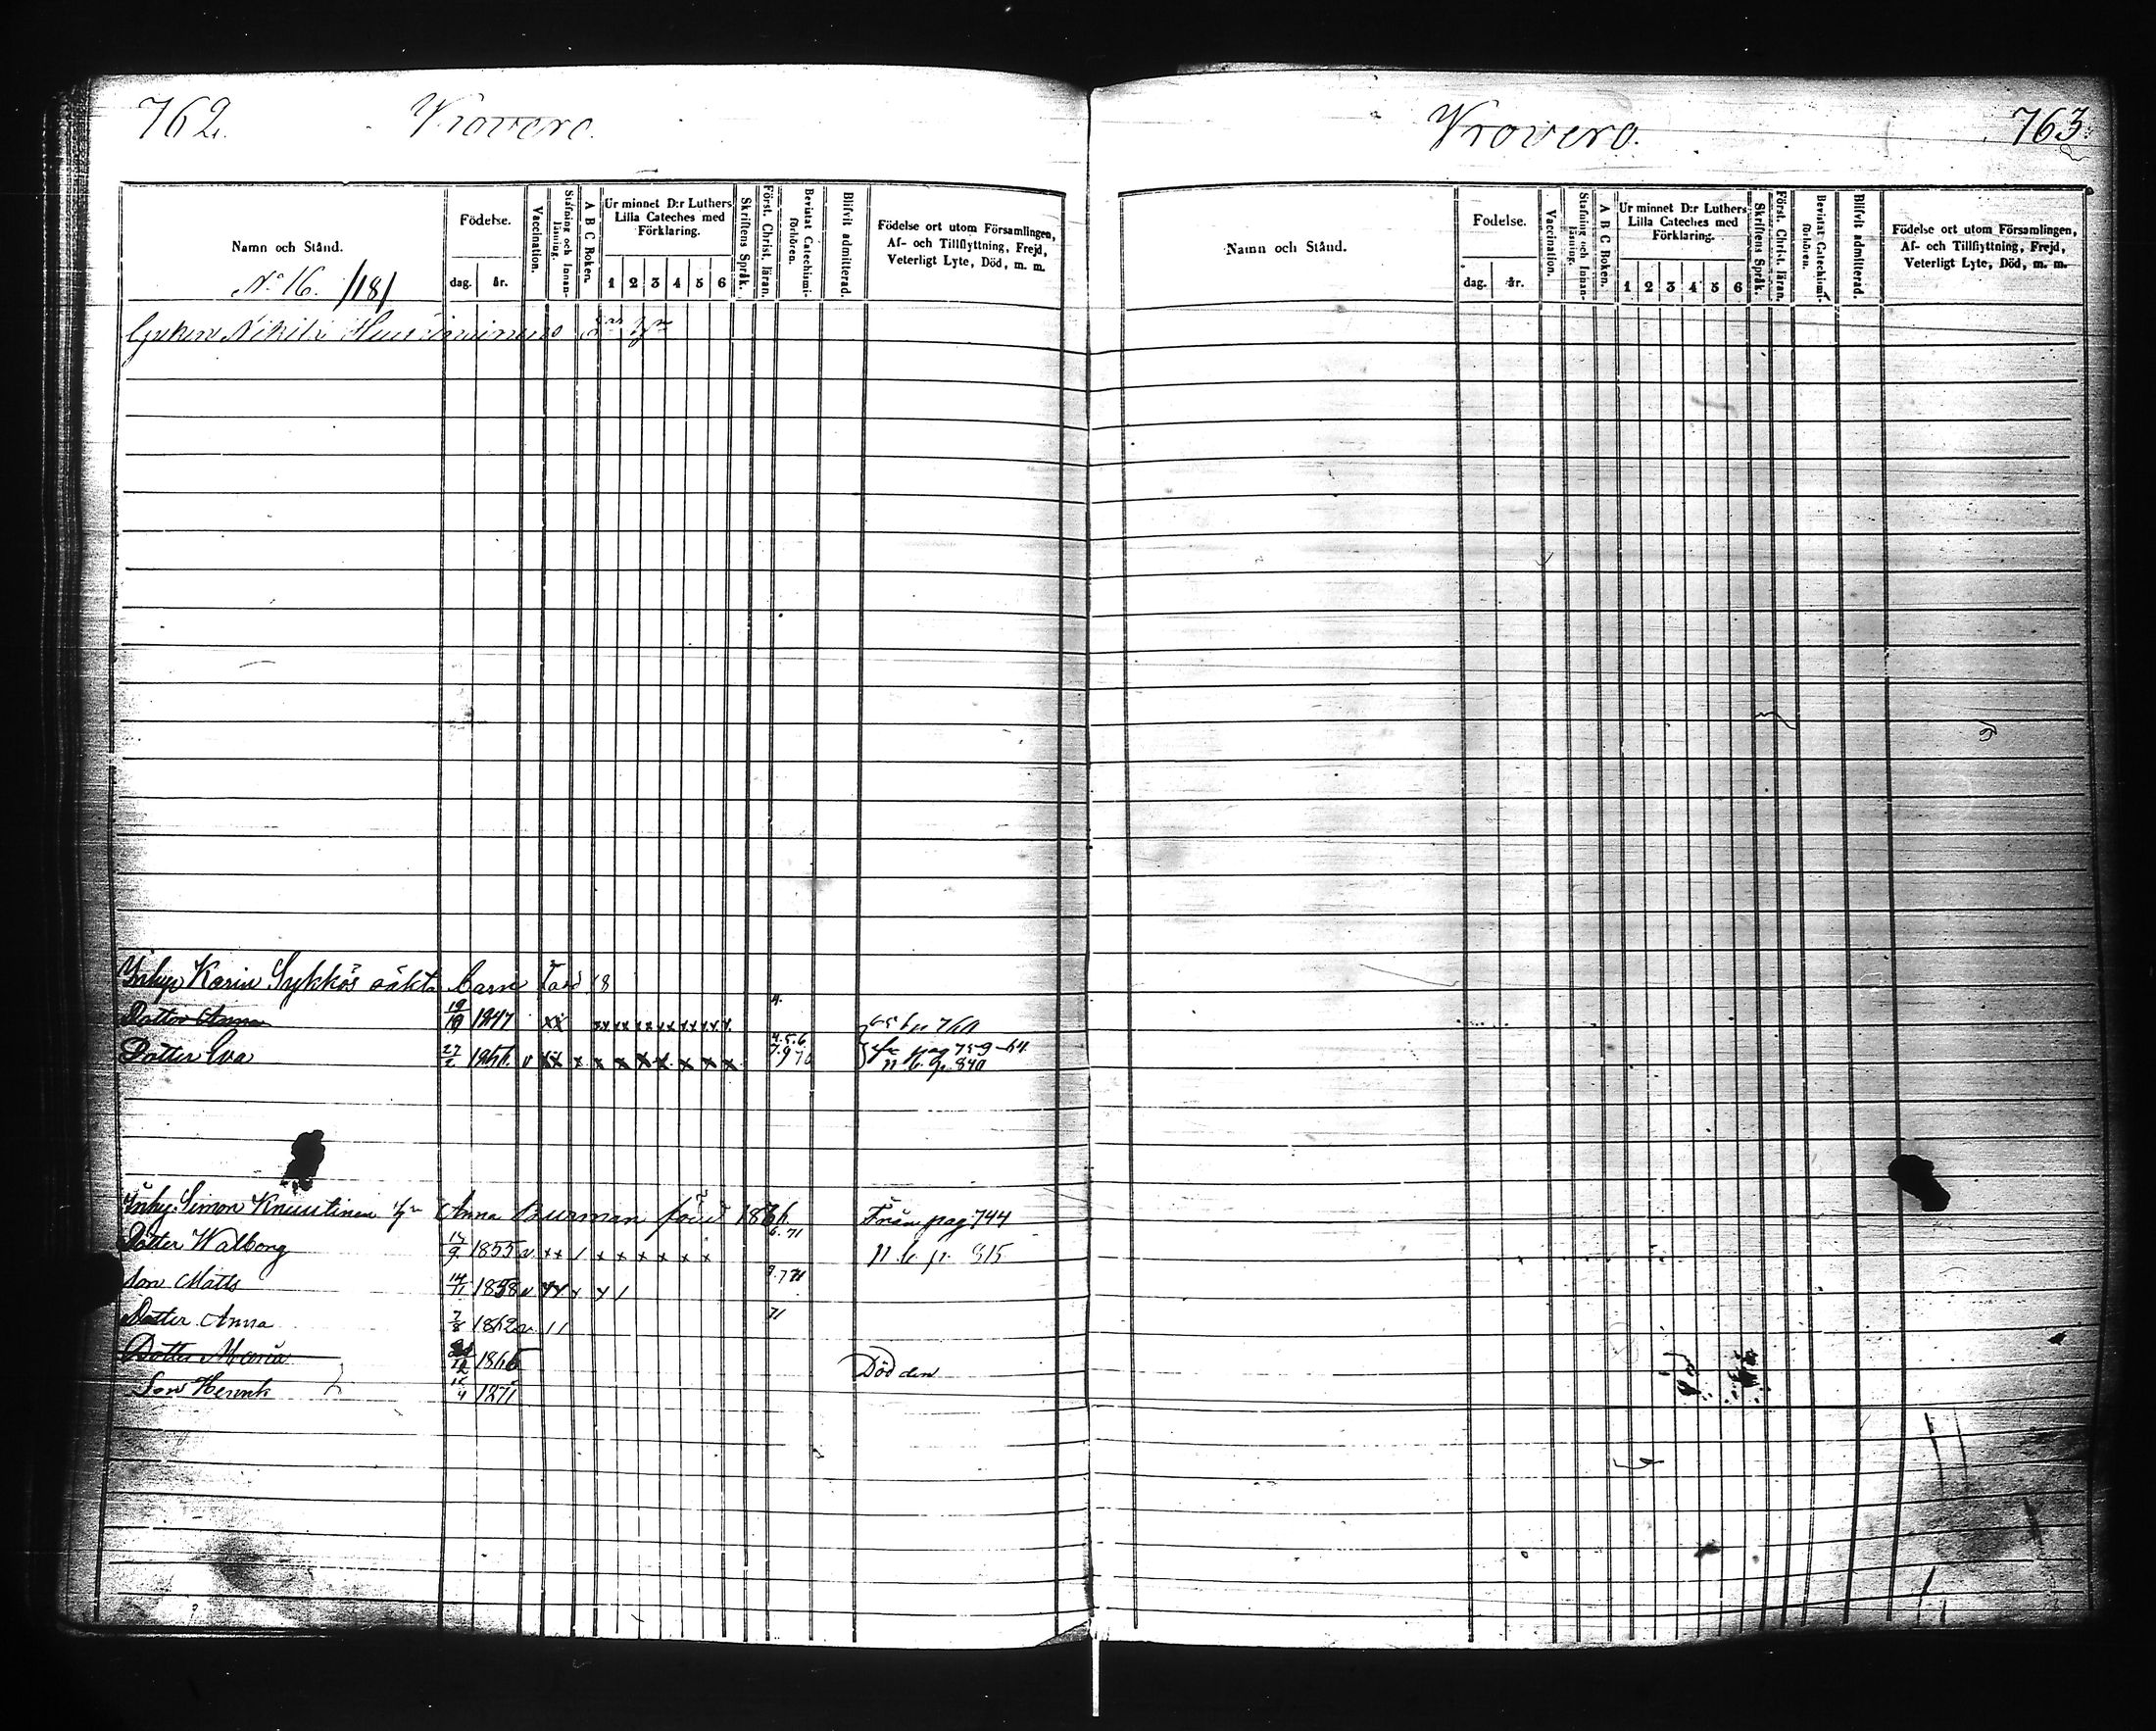 762. Wrovero.
Namn och Stånd.
Födelse.
dag. år.
Vaccination.
Stafning och Innanläsning.
A B C Boken.
Ur minnet D:r Luthers Lilla Cateches med Förklaring.
1 2 3 4 5 6
Skriftens Språk.
Först. Christ. läran.
Bevistat Catechismiförhören.
Blifvit admitterad.
Födelse ort utom Församlingen, Af- och Tillflyttning, Frejd, Veterligt Lyte, Död, m. m.
No 16. /18/
Nikita
Inhys Karin Sykkös oäkta barn född 18
Dotter Anna 1847 xx xx xx xx xx xx xx 4.
Dotter Eva 27/2 1856 v xx x x x x x x x x 4.5.6 7.9 70 pag 759-64 n. b. p. 840
Inhy. Simon Knuutinen Anna Burman född Från pag. 744
Dotter Walborg 1855 v xx / x x x x x x 6.71 n. b. p. 815
Son Matts 14/11 1858 v xx x x / 9.771
Dotter Anna 7/8 1862 v. // 71
Dotter Maria 1865 Död den
Son Henrik 1871
Wrovero. 763
Namn och Stånd.
Födelse.
dag. år.
Vaccination.
Stafning och Innanläsning.
A B C Boken.
Ur minnet D:r Luthers Lilla Cateches med Förklaring.
1 2 3 4 5 6
Skriftens Språk.
Först. Christ. läran.
Bevistat Catechismiförhören.
Blifvit admitterad.
Födelse ort utom Församlingen, Af- och Tillflyttning, Frejd, Veterligt Lyte, Död, m. m.